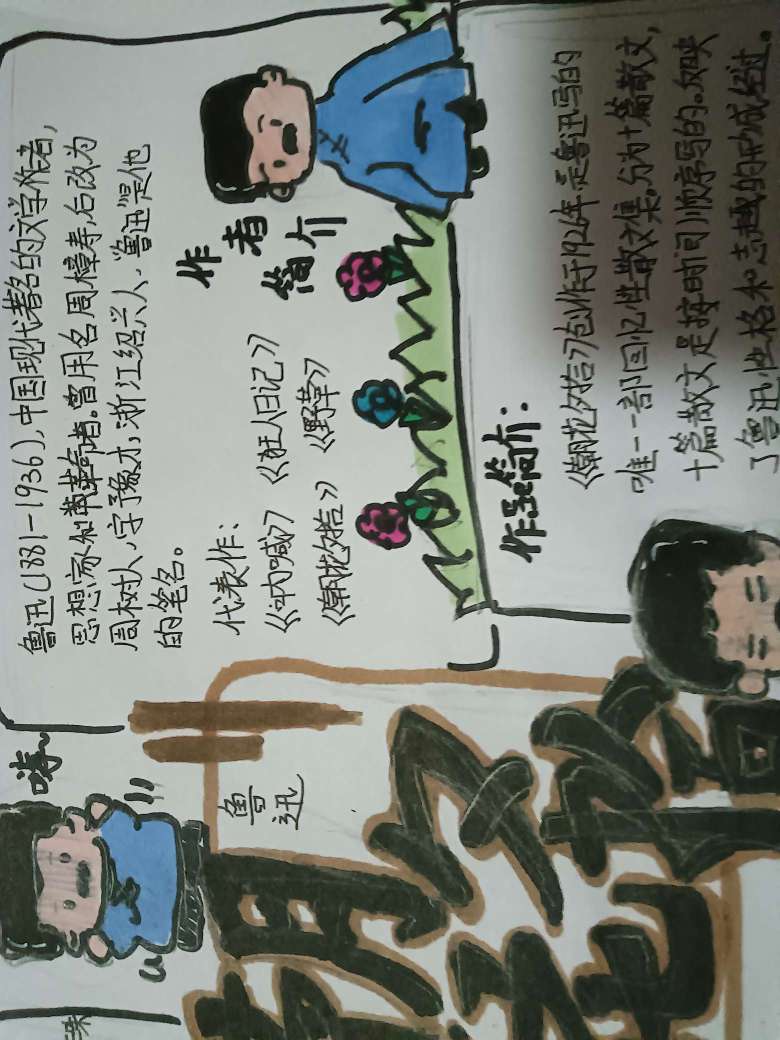 朝花夕拾
鲁迅
哼
课
作者简介
鲁迅(1881-1936),中国现代著名的文学作者,
思想家和革命者。曾用名周樟寿,后改为
周树人,字豫才,浙江绍兴人,“鲁迅”是他
的笔名。
代表作:
《呐喊》 《狂人日记》
《朝花夕拾》 《野草》
作品简介:
《朝花夕拾》创作于1926年.是鲁迅写的
唯一一部回忆性散文集,分为十篇散文,
十篇散文是按时间顺序写的。反映
了鲁迅性格和志趣的形成经过。